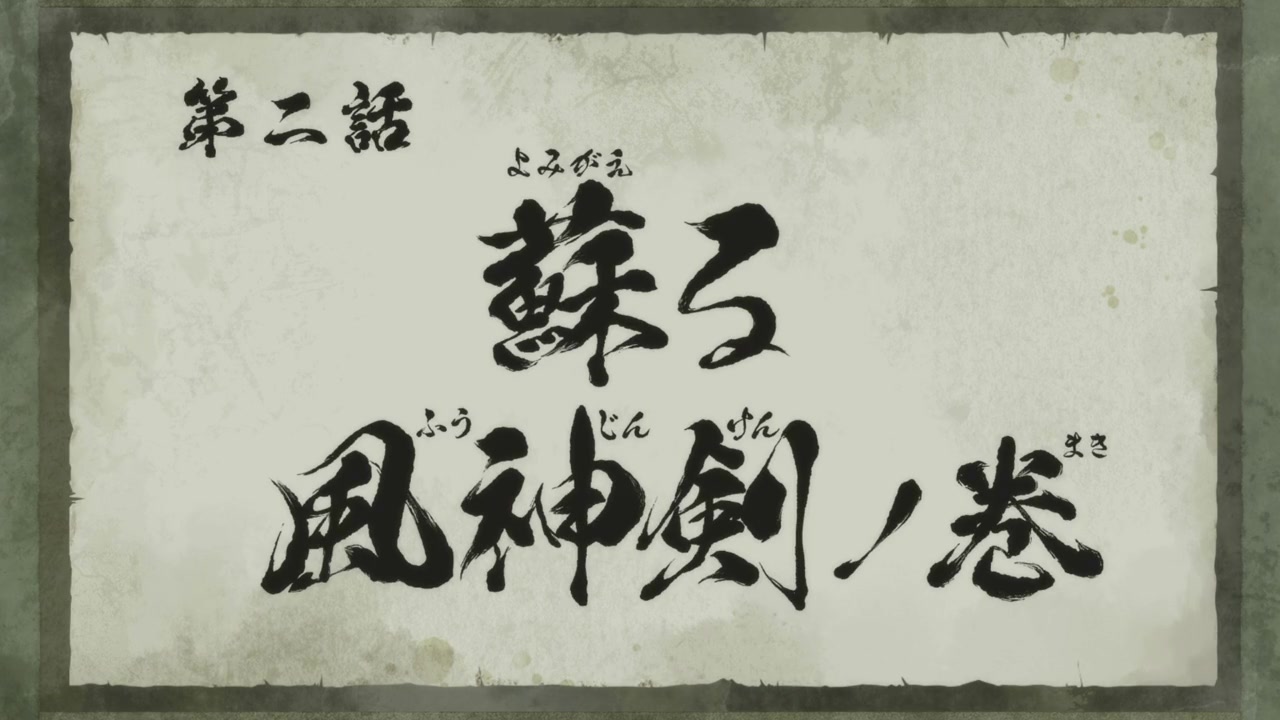 第二話
よみがえ
蘇る
ふうじんけん まき
風神剣ノ巻